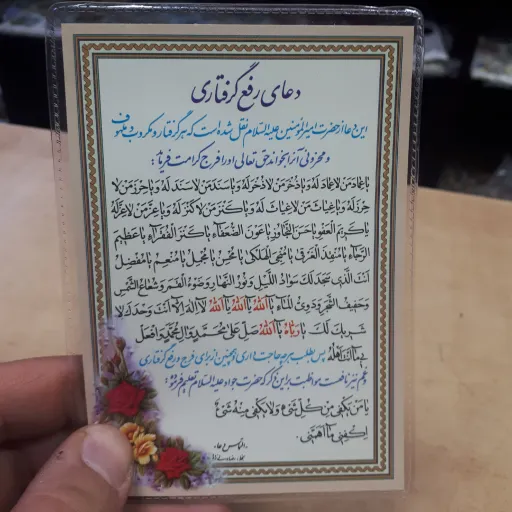 دعای رفع گرفتاری
این دعا از حضرت امیرالمؤمنین علیه السلام نقل شده است که هر گرفتار و مکروب و ملهوف
و محزونی آنرا بخواند حق تعالی او را فرج کرامت فرماید:
یا عِمادَ مَنْ لا عِمادَ لَهُ وَ یا ذُخْرَ مَنْ لا ذُخْرَ لَهُ وَ یا سَنَدَ مَنْ لا سَنَدَ لَهُ وَ یا حِرْزَ مَنْ لا
حِرْزَ لَهُ وَ یا غِیاثَ مَنْ لا غِیاثَ لَهُ وَ یا کَنْزَ مَنْ لا کَنْزَ لَهُ وَ یا عِزَّ مَنْ لا عِزَّ لَهُ
یا کَریمَ الْعَفْوِ یا حَسَنَ التَّجاوُزِ یا عَوْنَ الضُّعَفاءِ یا کَنْزَ الْفُقَراءِ یا عَظیمَ
الرَّجاءِ یا مُنْقِذَ الْغَرْقی یا مُنْجِیَ الْهَلْکی یا مُحْسِنُ یا مُجْمِلُ یا مُنْعِمُ یا مُفْضِلُ
اَنْتَ الَّذی سَجَدَ لَکَ سَوادُ اللَّیْلِ وَ نُورُ النَّهارِ وَ ضَوْءُ الْقَمَرِ وَ شُعاعُ الشَّمْسِ
وَ حَفیفُ الشَّجَرِ وَ دَوِیُّ الْماءِ یا اَللهُ یا اَللهُ یا اَللهُ لا اِلهَ اِلاّ اَنْتَ وَحْدَکَ لا
شَریکَ لَکَ یا رَبّاهُ یا اَللهُ صَلِّ عَلی مُحَمَّدٍ وَ الِ مُحَمَّدٍ وَ افْعَلْ
بی ما اَنْتَ اَهْلُهُ پس بطلب هر چه حاجت داری و همچنین از برای فرج و رفع گرفتاری
و غم نیز نافعست مواظبت بر این ذکر که حضرت جواد علیه السلام تعلیم فرموده:
یا مَنْ یَکْفی مِنْ کُلِّ شَیْءٍ وَ لا یَکْفی مِنْهُ شَیْءٌ
اِکْفِنی ما اَهَمَّنی.
التماس دعا